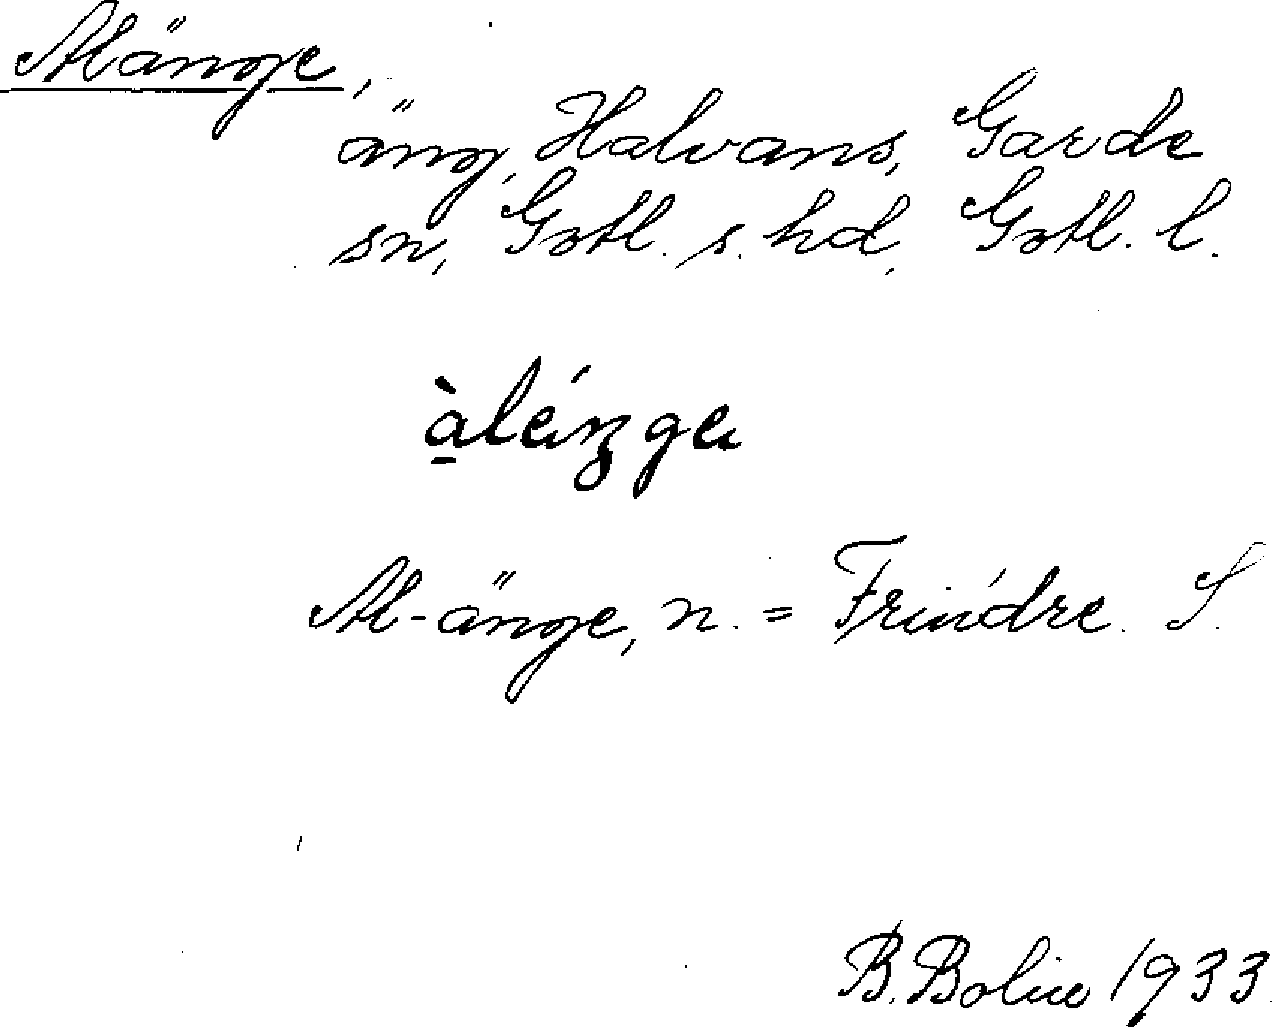 Alänge,
äng, Halvans, Garde
sn, Gotl. s. hd, Gotl. l.
Al-änge, n. =
B. Bolin 1933